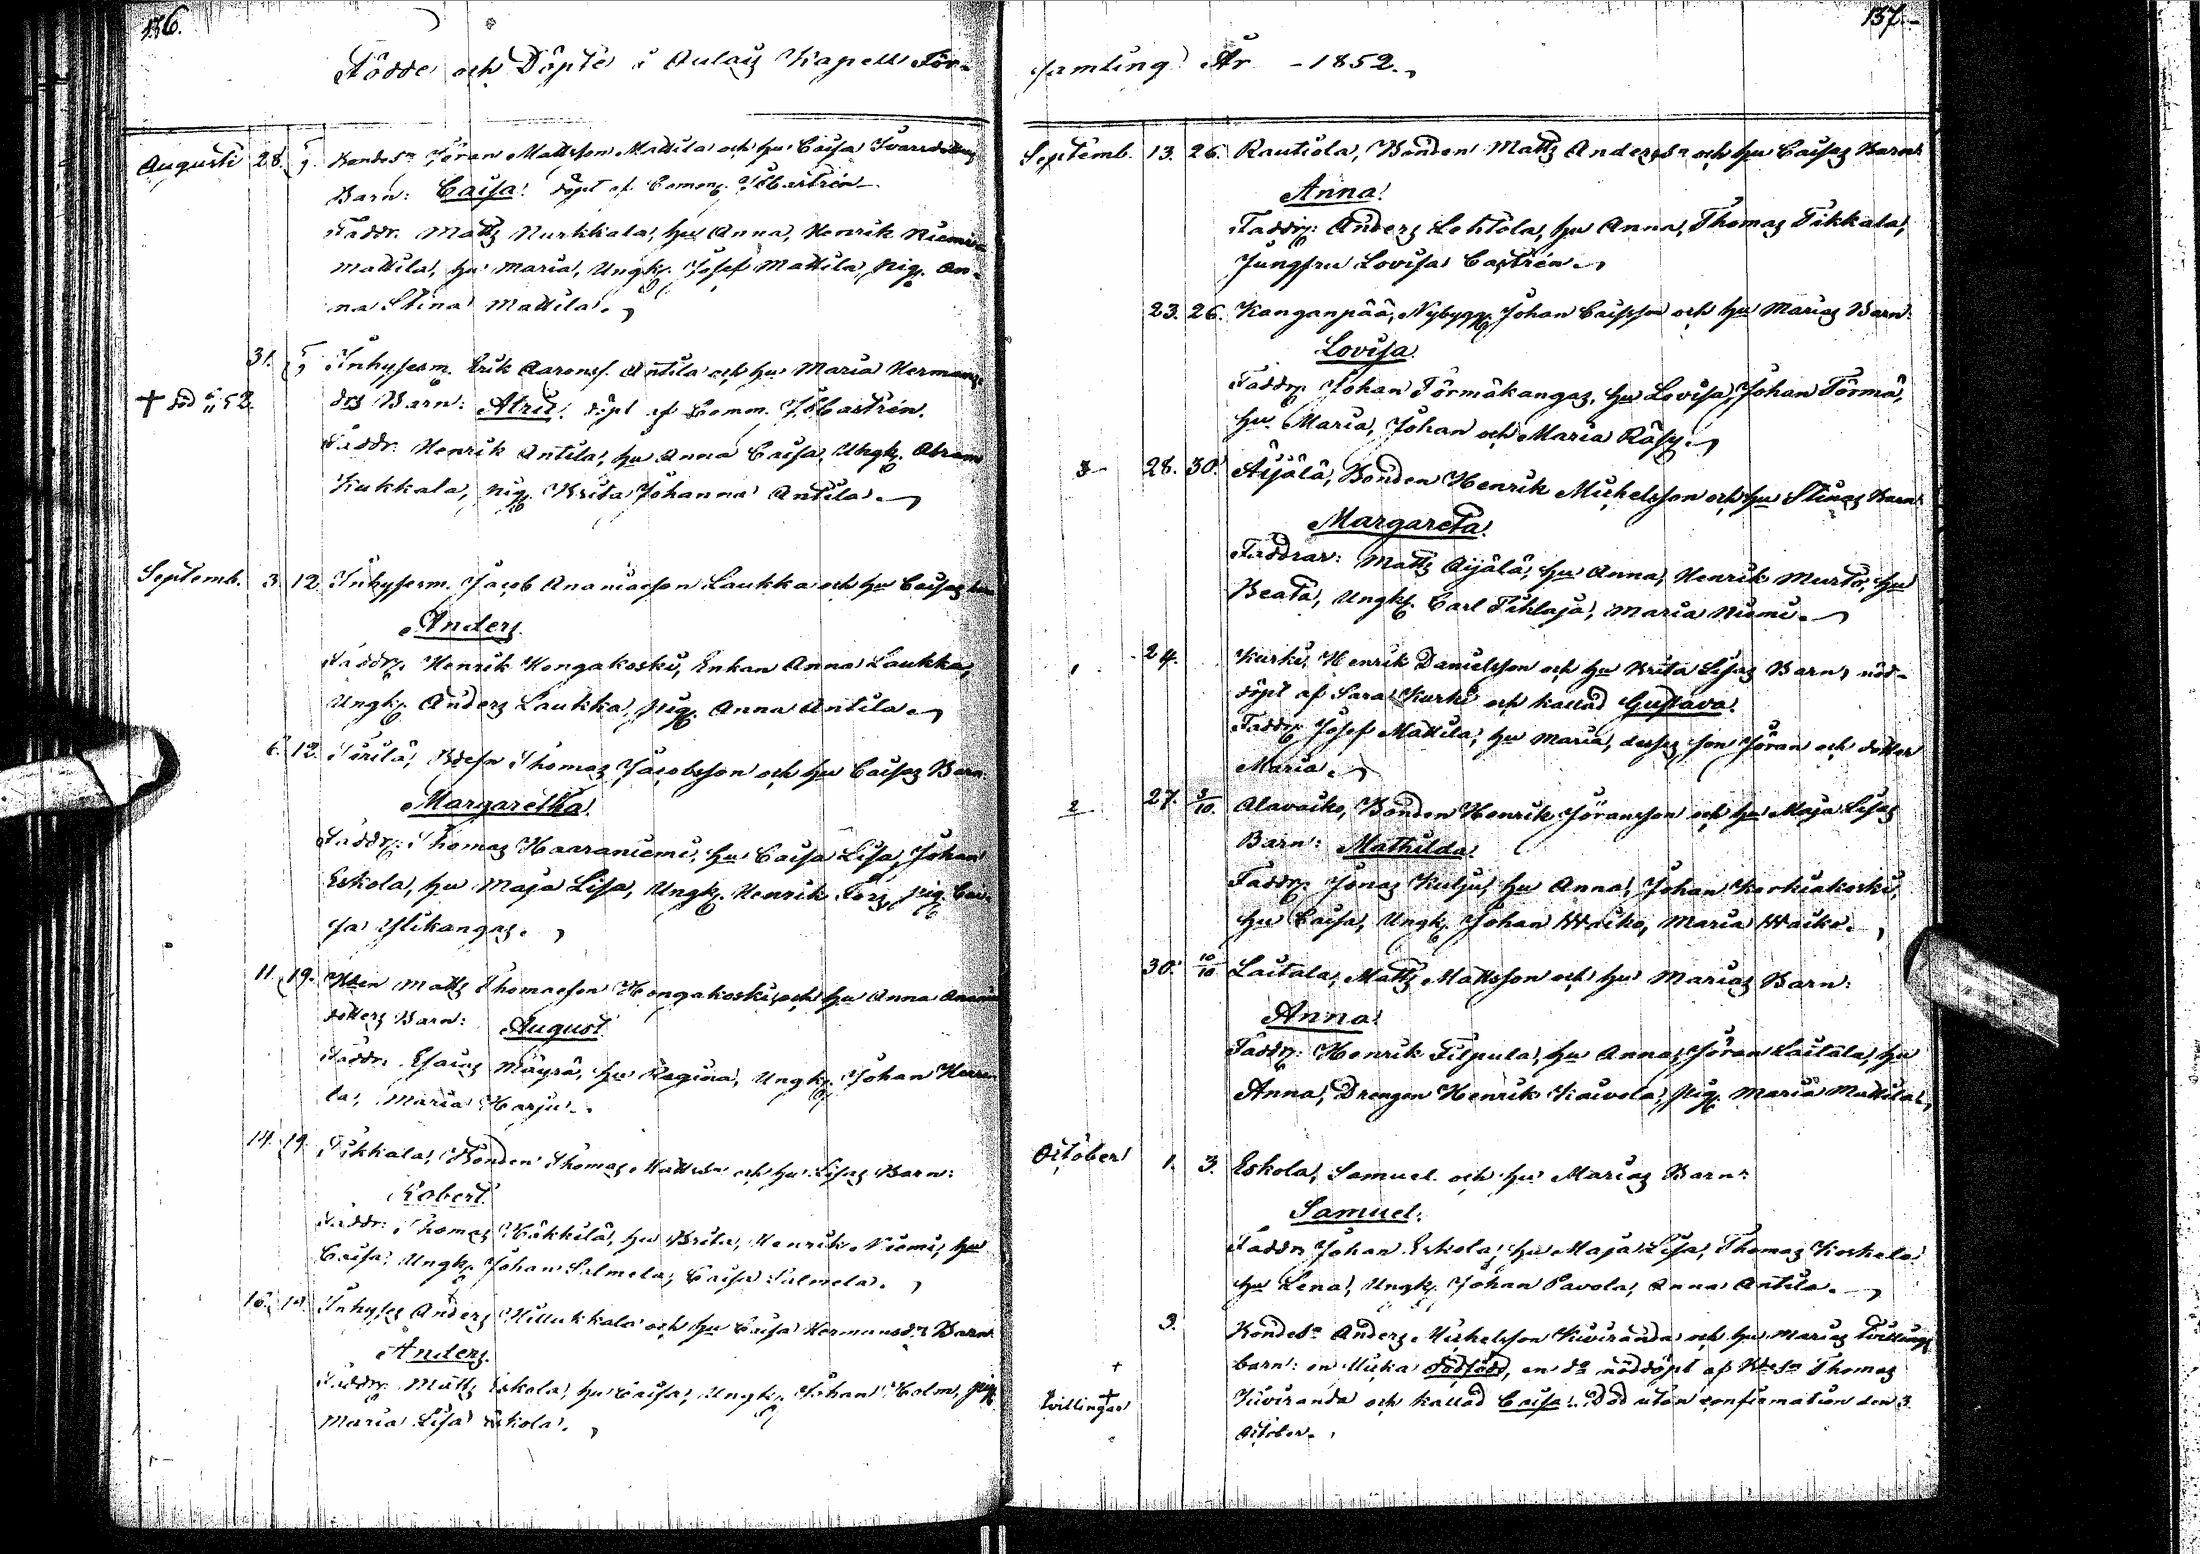 136.
Födde och Döpte i Aulais Kapell För-
Augusti 28. 5/9. Bondes. Jöran Mattsson Mattila och hu Caisa Ivarsdotters
Barn: Caisa. döpt af Comm. Castrén.
Faddr. Matts Nurkkala, hu Anna, Henrik Niemi-
mattila, hu Maria, Ungk. Josef Mattila, pig. An-
na Stina Mattila.
31. 5/9 Inhysesm. Erik Aaronss. Antila och hu Maria Hermans-
† död 52. drs Barn: döpt af Comm. Castrén.
Faddr. Henrik Antila, hu Anna Caisa, Ungk. Abram
Kukkala, pig. Brita Johanna Antila.
Septemb. 3. 12. Inhysesm. Jacob Ananiaeson Laukka och hu Caisas
Anders.
Faddr. Henrik Hongakoski, Enkan Anna Laukka,
Ungk. Anders Laukka, pig. Anna Antila.
6. 12. Sirilä, Bdesn Thomas Jacobsson och hu Caisas Barn
Margaretha.
Faddr. Thomas Haaraniemi, hu Caisa Lisa, Johan
Eskola, hu Maja Lisa, Ungk. Henrik Fors, pig. Cai-
sa Ylikangas.
11. 19. Matts Thomaeson Hongakoski och hu Anna
dotters Barn: August.
Faddr. Esaias Mäyrä, hu Regina, Ungk. Johan
la, Maria Harju.
14. 19. Tikkala, Bonden Thomas Mattss. och hu Lisas Barn:
Robert.
Faddr: Thomas Häkkilä, hu Brita, Henrik Niemi, hu
Caisa, Ungk. Johan Salmela, Caisa Salmela.
16. 19. Inhyses Anders Hillukkala och hu Caisa Hermansd:s Barn:
Anders.
Faddr. Matts Eskola, hu Caisa, Ungk. Johan Holm, pig.
Maria Lisa Eskola.
137.
samling År - 1852.
Septemb. 13. 26. Rautiola, Bonden Matts Anders:n och hu Caisas Barn:
Anna.
Faddr: Anders Lehtola, hu Anna, Thomas Tikkala,
Jungfru Lovisa Castrén.
23. 26. Kanganpää, Nybygg. Johan Caisson och hu Marias Barn:
Lovisa.
Faddr. Johan Törmäkangas, hu Lovisa, Johan Törmä,
hu Maria, Johan och Maria Räsy.
3 28. 30. Äijälä, Bonden Henrik Michelsson och hu Stinas Barn:
Margareta.
Faddrar: Matts Äijälä, hu Anna, Henrik Murto, hu
Beata, Ungk. Carl Pihlaja, Maria Niemi.
1 24. Kurki, Henrik Danielsson och hu Brita Lisas Barn, nöd-
döpt af Sara Kurki och kallad Gustava.
Faddr: Josef Mattila, hu Maria, desses son Jöran och dotter
Maria.
2 27. 3/10. Alavaiko, Bonden Henrik Jöransson och hu Maja Lisas
Barn: Mathilda.
Faddr. Jonas Kulju, hu Anna, Johan Korkiakoski,
hu Caisa, Ungk. Johan Waiko, Maria Waiko.
30. 10/10. Laitala, Matts Mattsson och hu Marias Barn:
Anna.
Faddr: Henrik Filpula, hu Anna, Jöran Laitala, hu
Anna, Drengen Henrik Kaivola, pig. Maria Mattila.
October 1. 3. Eskola, Samuel och hu Marias Barn:
Samuel.
Faddr. Johan Eskola, hu Maja Lisa, Thomas Koskela
hu Lena, Ungk. Johan Pavola, Anna Antila.
3. Bondes:n Anders Michelsson Kiviranda och hu Marias tvillings
+ barn: en flicka dödfödd, en d:o nöddöpt af Bdes:n Thomas
Tvillingar † Kiviranda och kallad Caisa. Död utan confirmation den 3.
October.